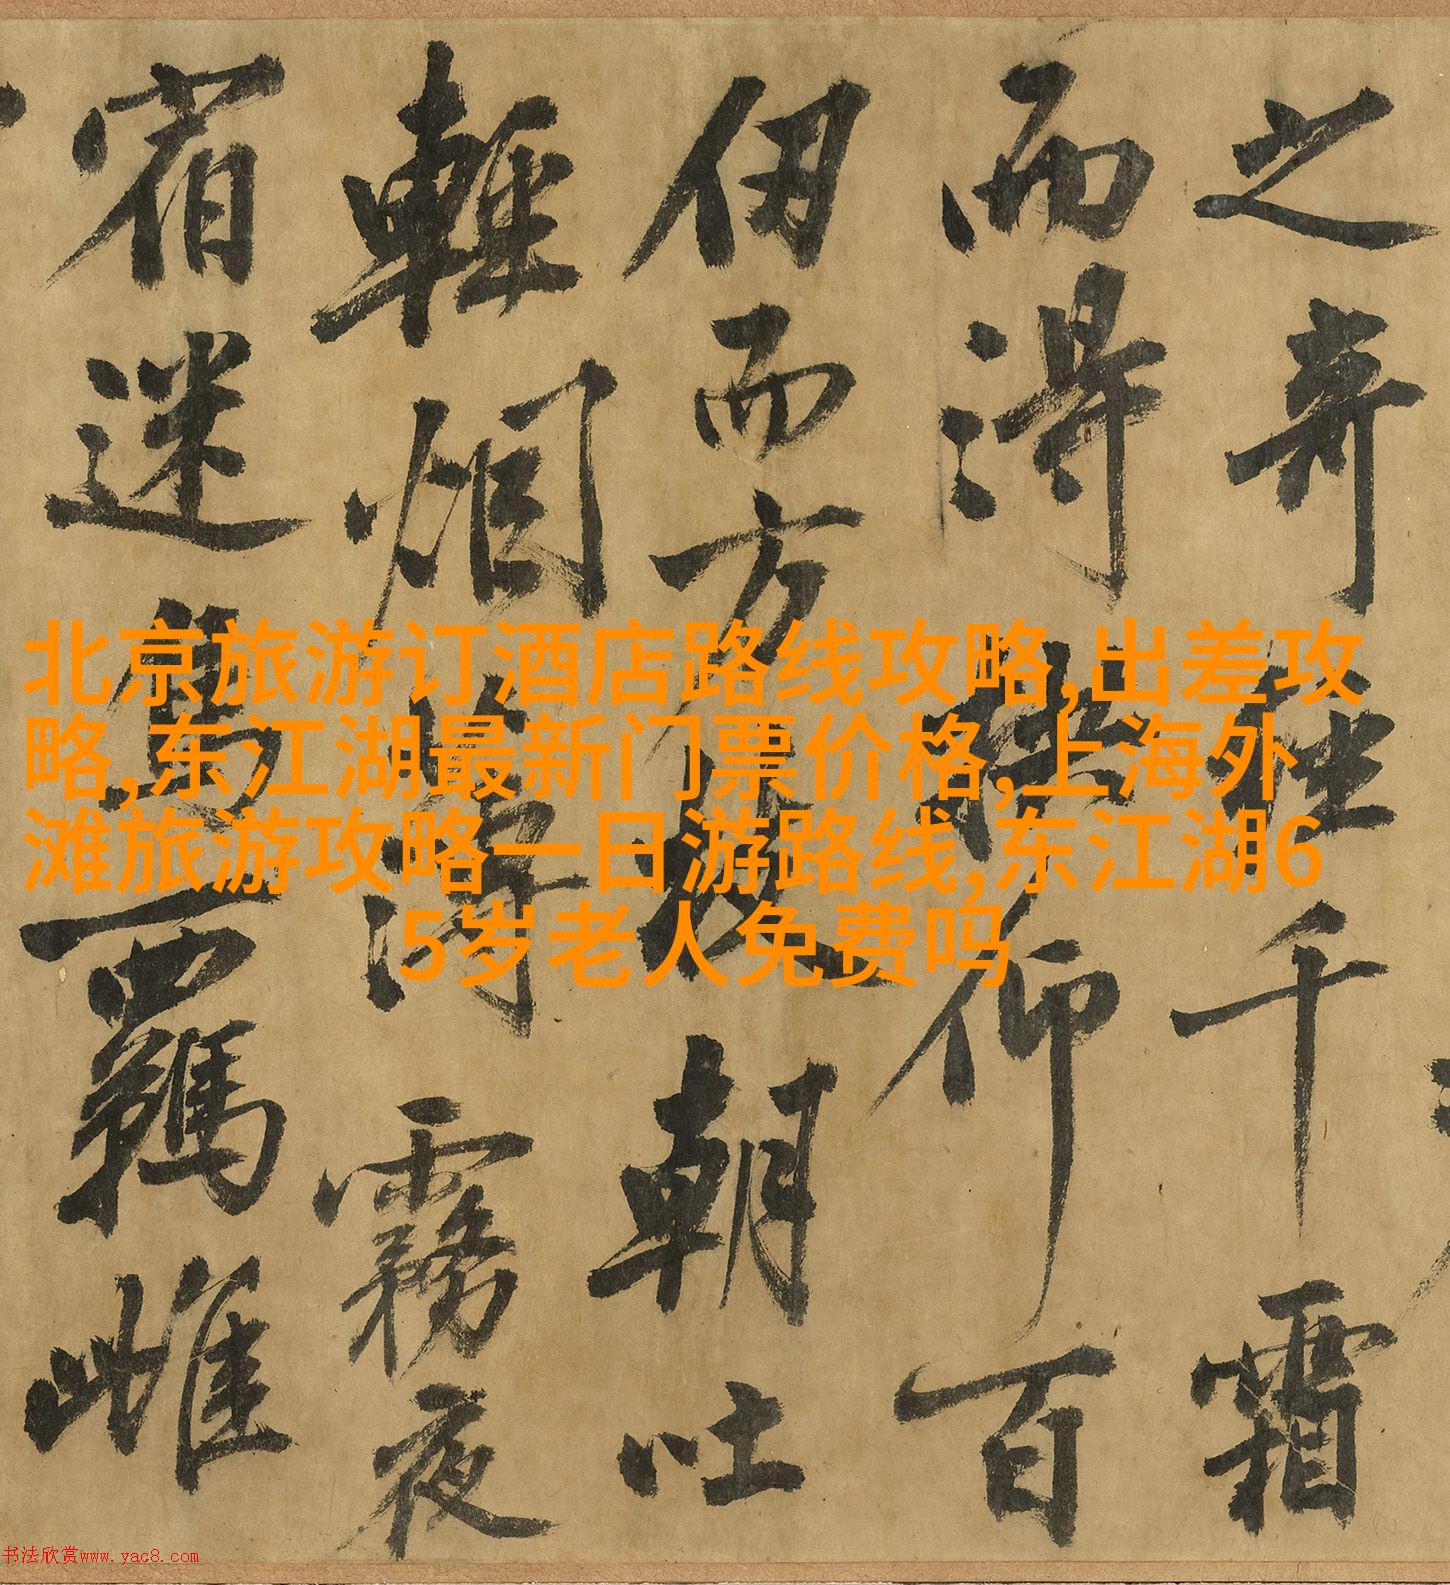 之奇千霜
而得拱仰百
仞而方枝朝吐
輕烟薄霧夜
宿迷鳥羈雌
北京旅游订酒店路线攻略,出差攻
略,东江湖最新门票价格,上海外
滩旅游攻略一日游路线,东江湖6
5岁老人免费吗
书法欣赏www.yac8.com